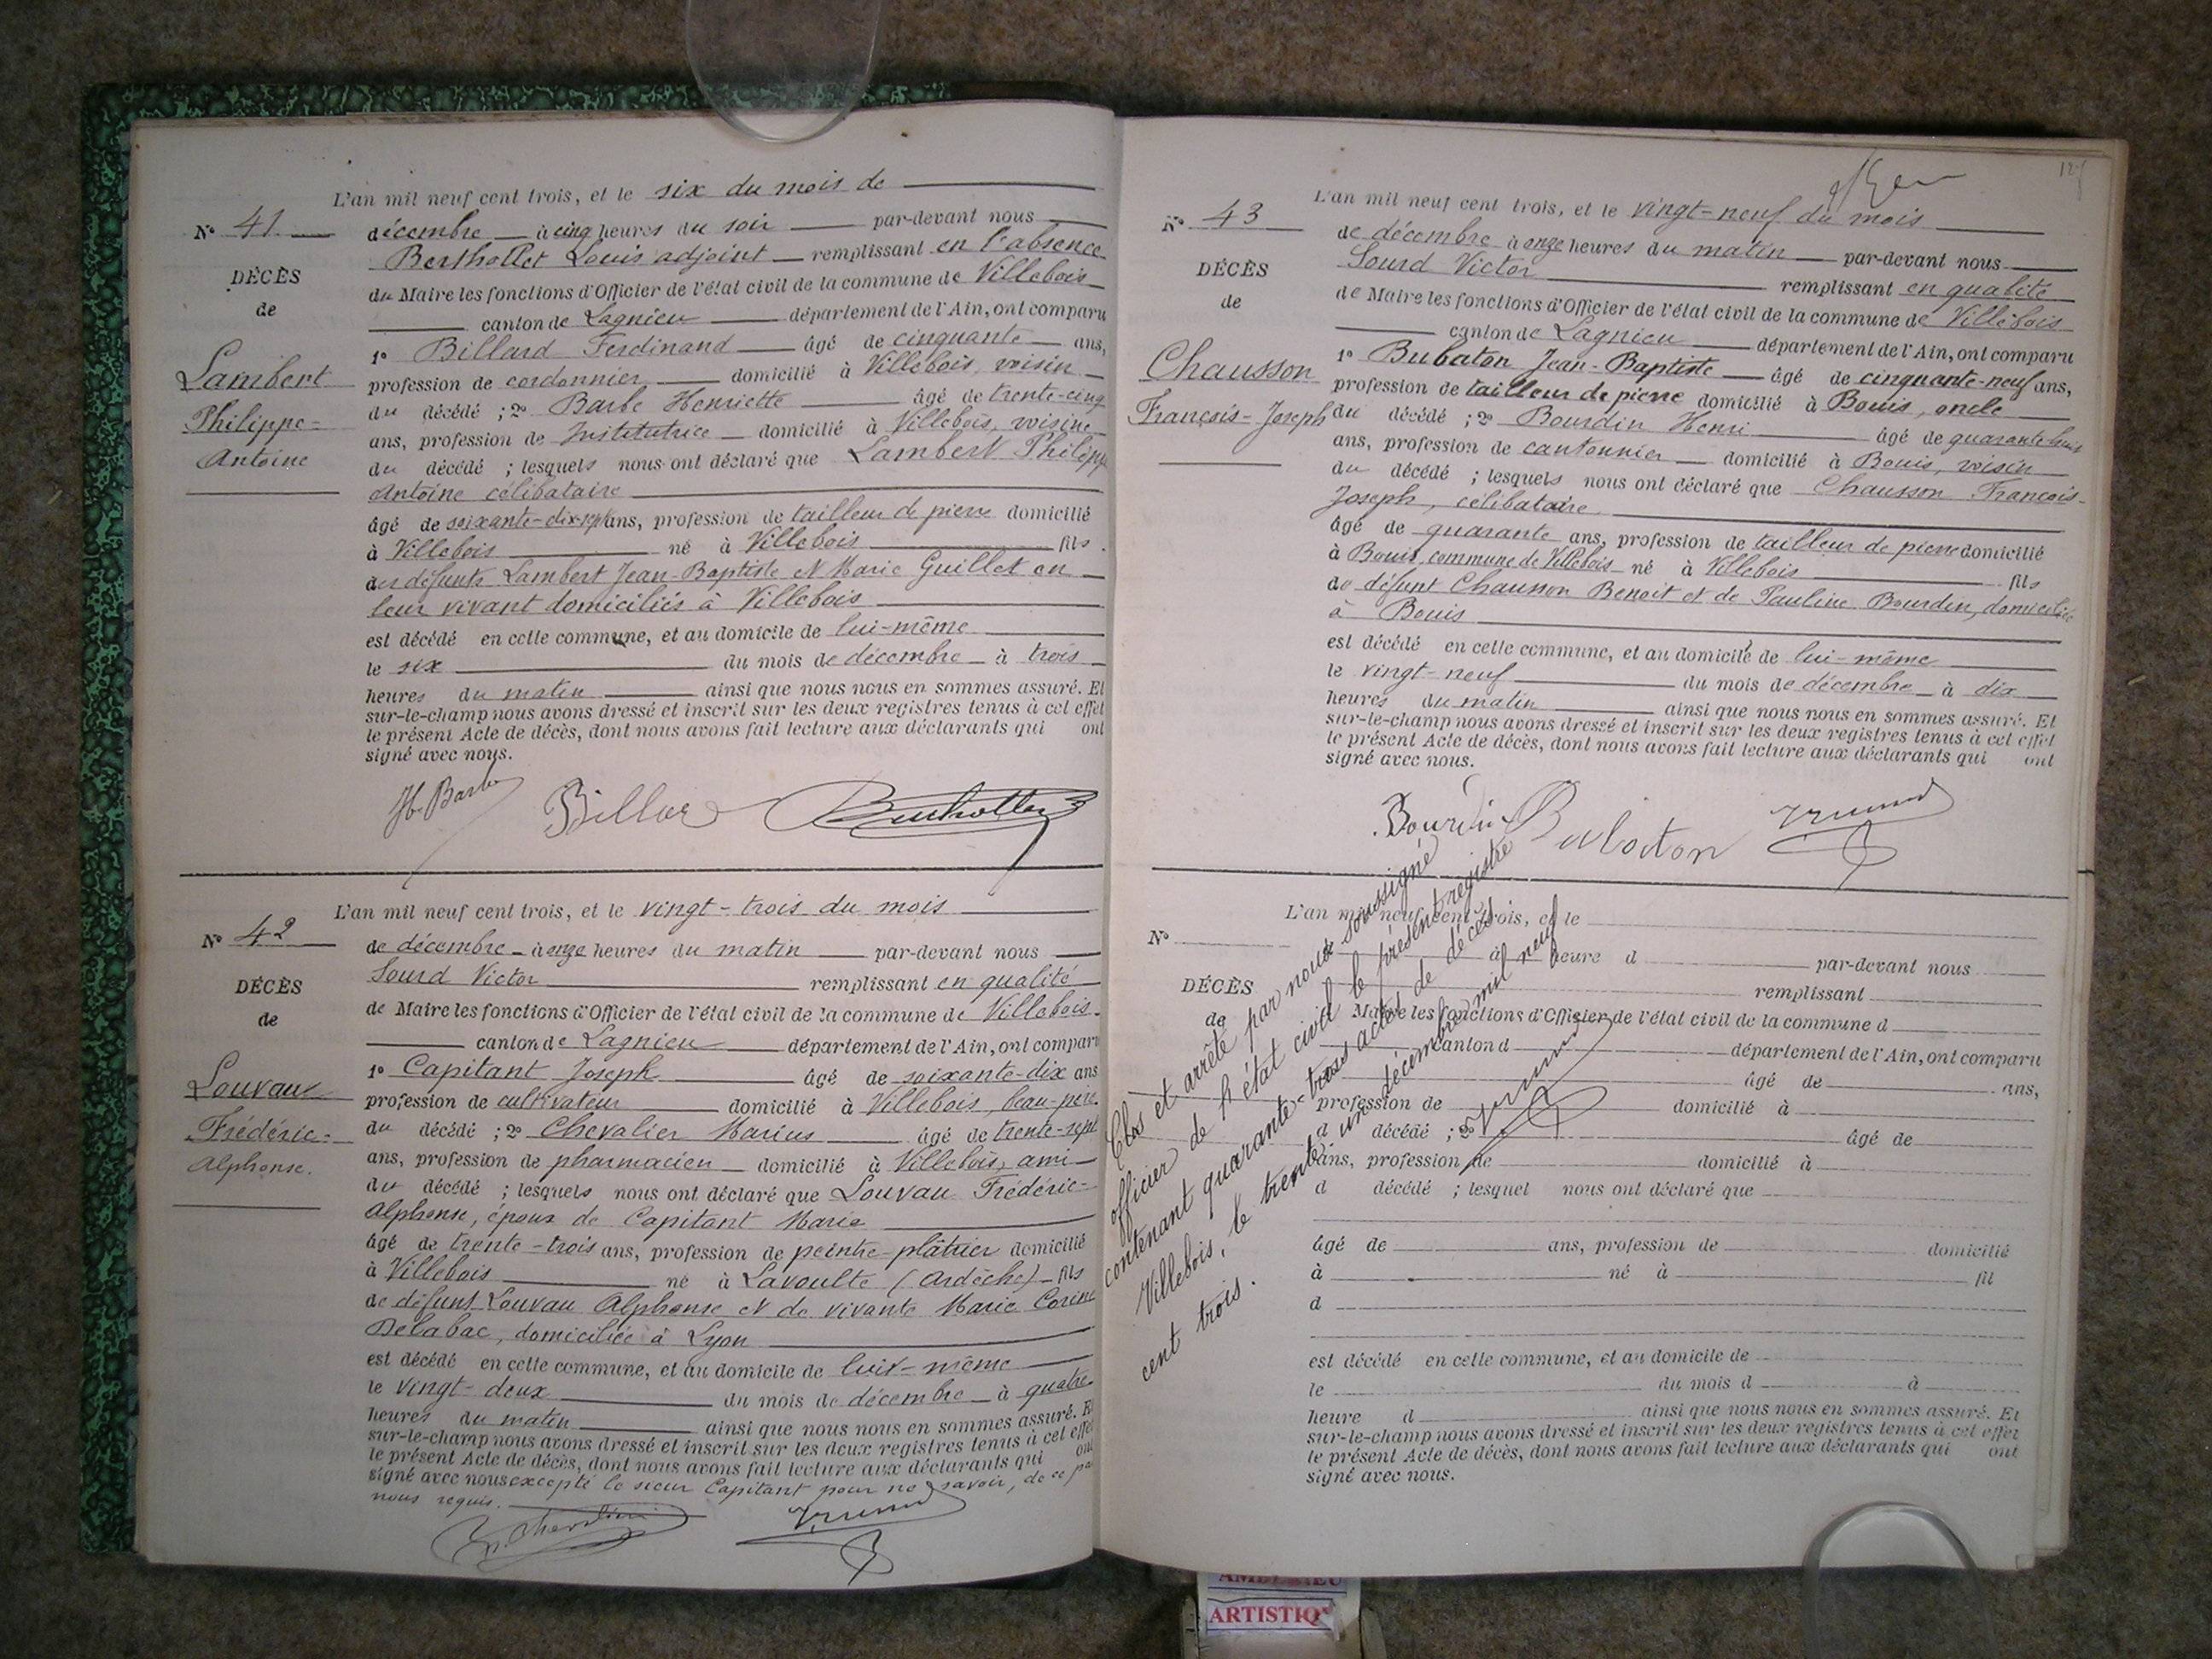 L'an mil neuf cent trois, et le six du mois de
N° 41
décembre à cinq heures du soir par-devant nous
Berthollet Louis adjoint remplissant en l'absence
DÉCÈS
du Maire les fonctions d'Officier de l'état civil de la commune de Villebois
de
canton de Lagnieu département de l'Ain, ont comparu
1° Billard Ferdinand âgé de cinquante ans,
Lambert
profession de cordonnier domicilié à Villebois, voisin
du décédé ; 2° Barbe Henriette âgé de trente-cinq
Philippe-
ans, profession de Institutrice domicilié à Villebois, voisine
Antoine
du décédé ; lesquels nous ont déclaré que Lambert Philippe
Antoine célibataire
âgé de soixante-dix-sept ans, profession de tailleur de pierre domicilié
à Villebois né à Villebois fils
des défunts Lambert Jean-Baptiste et Marie Guillet en
leur vivant domiciliés à Villebois
est décédé en cette commune, et au domicile de lui-même
le six du mois de décembre à trois
heures du matin ainsi que nous nous en sommes assuré. Et
sur-le-champ nous avons dressé et inscrit sur les deux registres tenus à cet effet
le présent Acte de décès, dont nous avons fait lecture aux déclarants qui ont
signé avec nous.
H. Barbe Billard Berthollet
L'an mil neuf cent trois, et le vingt-trois du mois
N° 42
de décembre à onze heures du matin par-devant nous
Sourd Victor remplissant en qualité
DÉCÈS
de Maire les fonctions d'Officier de l'état civil de la commune de Villebois
de
canton de Lagnieu département de l'Ain, ont comparu
1° Capitant Joseph âgé de soixante-dix ans
Louvau
profession de cultivateur domicilié à Villebois, beau-père
Frédéric-
du décédé ; 2° Chevalier Marius âgé de trente-sept
Alphonse.
ans, profession de pharmacien domicilié à Villebois, ami
du décédé ; lesquels nous ont déclaré que Louvau Frédéric-
Alphonse, époux de Capitant Marie
âgé de trente-trois ans, profession de peintre-plâtrier domicilié
à Villebois né à Lavoulte (Ardèche) fils
de défunt Louvau Alphonse et de vivante Marie Corine
Delabac, domiciliée à Lyon
est décédé en cette commune, et au domicile de lui-même
le vingt-deux du mois de décembre à quatre
heures du matin ainsi que nous nous en sommes assuré. Et
sur-le-champ nous avons dressé et inscrit sur les deux registres tenus à cet effet
le présent Acte de décès, dont nous avons fait lecture aux déclarants qui ont
signé avec nous excepté le sieur Capitant pour ne savoir, de ce par
nous requis.
L'an mil neuf cent trois, et le vingt-neuf du mois
N° 43
de décembre à onze heures du matin par-devant nous
Sourd Victor remplissant en qualité
DÉCÈS
de Maire les fonctions d'Officier de l'état civil de la commune de Villebois
de
canton de Lagnieu département de l'Ain, ont comparu
1° Bubaton Jean-Baptiste âgé de cinquante-neuf ans,
Chausson
profession de tailleur de pierre domicilié à Bouis, oncle
François-Joseph
du décédé ; 2° Bourdin Henri âgé de quarante huit
ans, profession de cantonnier domicilié à Bouis, voisin
du décédé ; lesquels nous ont déclaré que Chausson François-
Joseph, célibataire
âgé de quarante ans, profession de tailleur de pierre domicilié
à Bouis, commune de Villebois né à Villebois fils
de défunt Chausson Benoit et de Pauline Bourdin, domiciliée
à Bouis
est décédé en cette commune, et au domicile de lui-même
le vingt-neuf du mois de décembre à dix
heures du matin ainsi que nous nous en sommes assuré. Et
sur-le-champ nous avons dressé et inscrit sur les deux registres tenus à cet effet
le présent Acte de décès, dont nous avons fait lecture aux déclarants qui ont
signé avec nous.
Bourdin Bubaton
Clos et arrêté par nous soussigné
officier de l'état civil le présent registre
contenant quarante-trois actes de décès
Villebois, le trente un décembre mil neuf
cent trois.
L'an mil neuf cent trois, et le
N°
à heure d par-devant nous
remplissant
DÉCÈS
Maire les fonctions d'Officier de l'état civil de la commune d
de
canton d département de l'Ain, ont comparu
âgé de ans,
profession de domicilié à
d décédé ; 2° âgé de
ans, profession de domicilié à
d décédé ; lesquel nous ont déclaré que
âgé de ans, profession de domicilié
à né à fil
d
est décédé en cette commune, et au domicile de
le du mois d à
heure d ainsi que nous nous en sommes assuré. Et
sur-le-champ nous avons dressé et inscrit sur les deux registres tenus à cet effet
le présent Acte de décès, dont nous avons fait lecture aux déclarants qui ont
signé avec nous.
ARTISTIQ